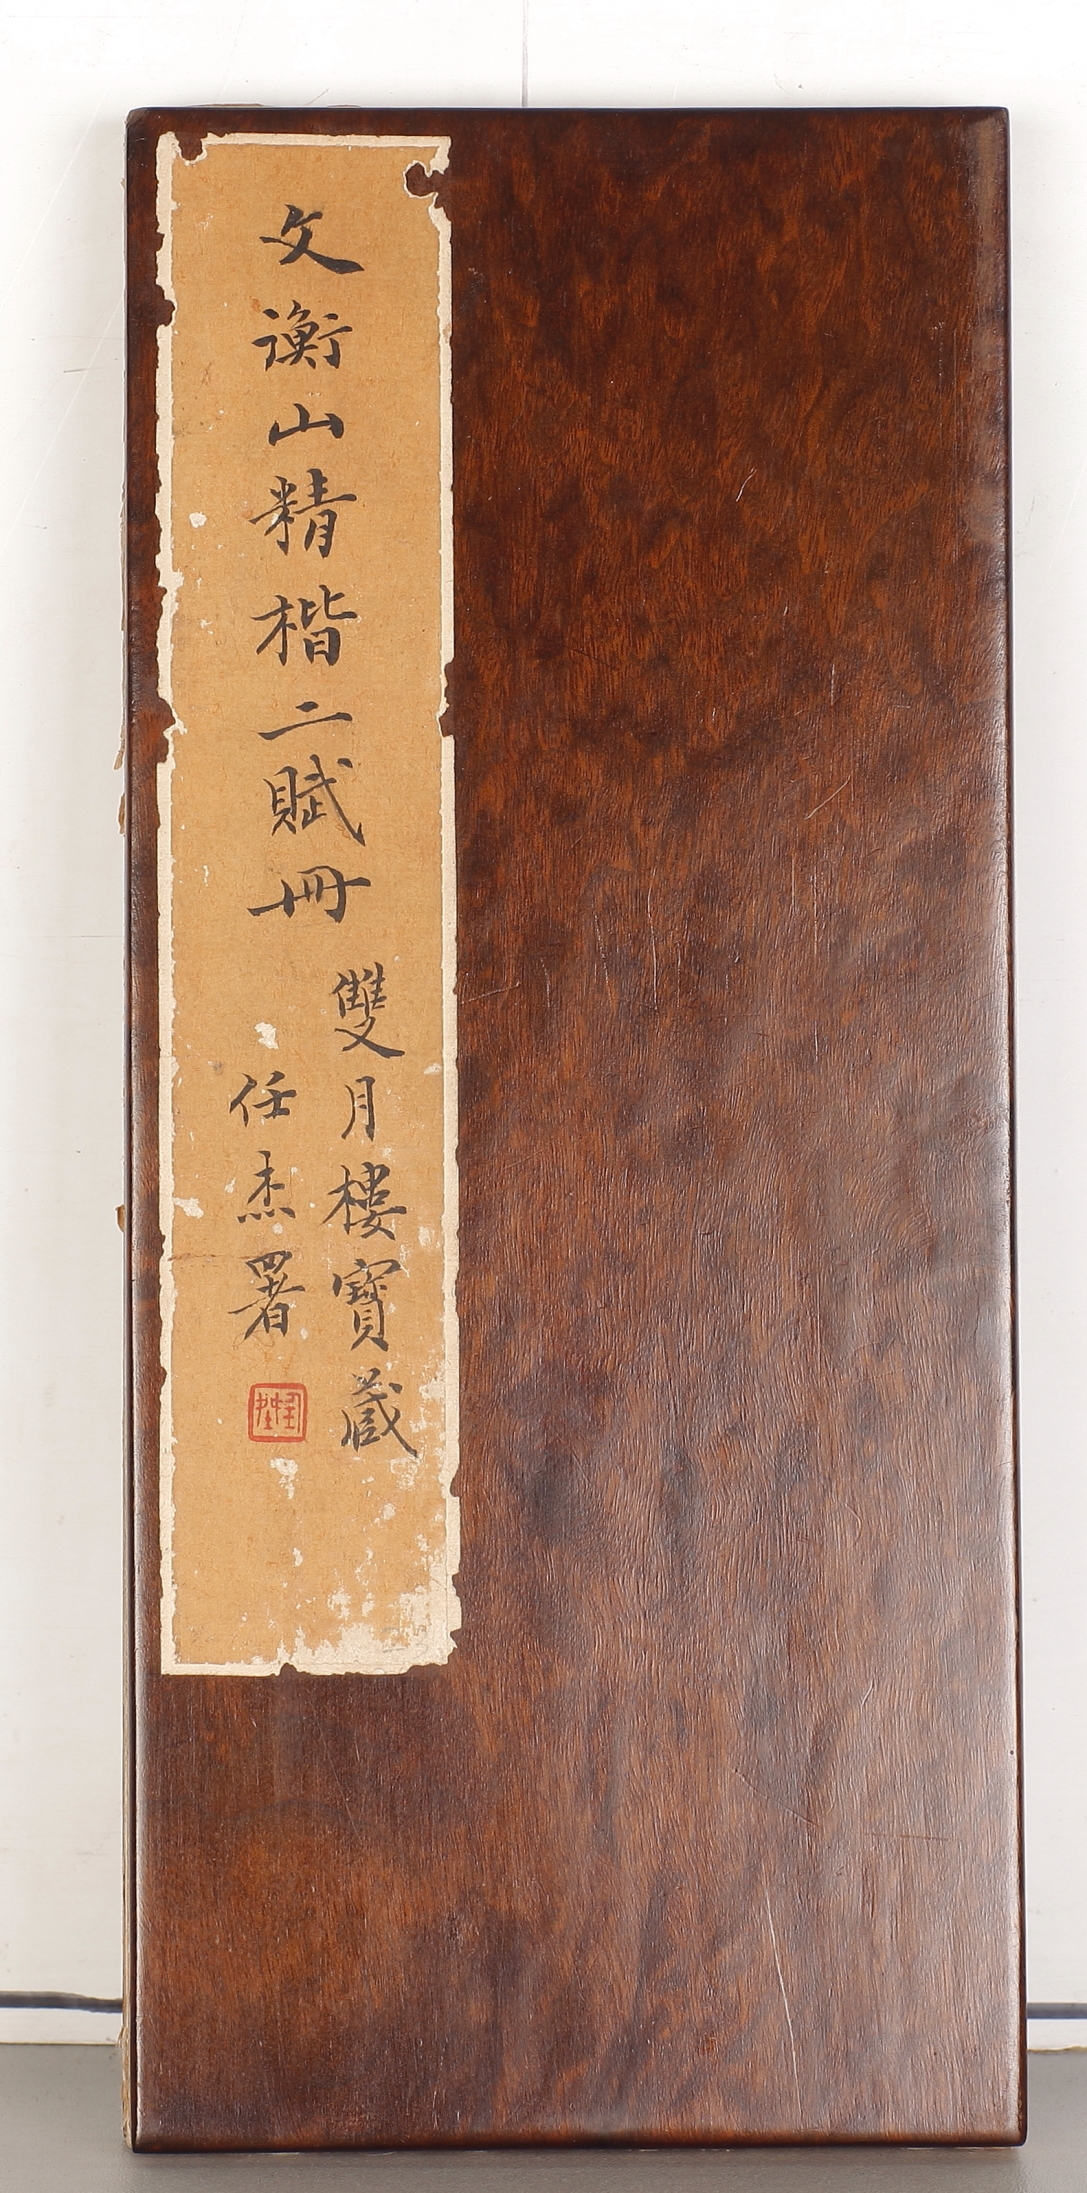 文衡山精楷二賦冊
雙月樓寶藏
任杰署